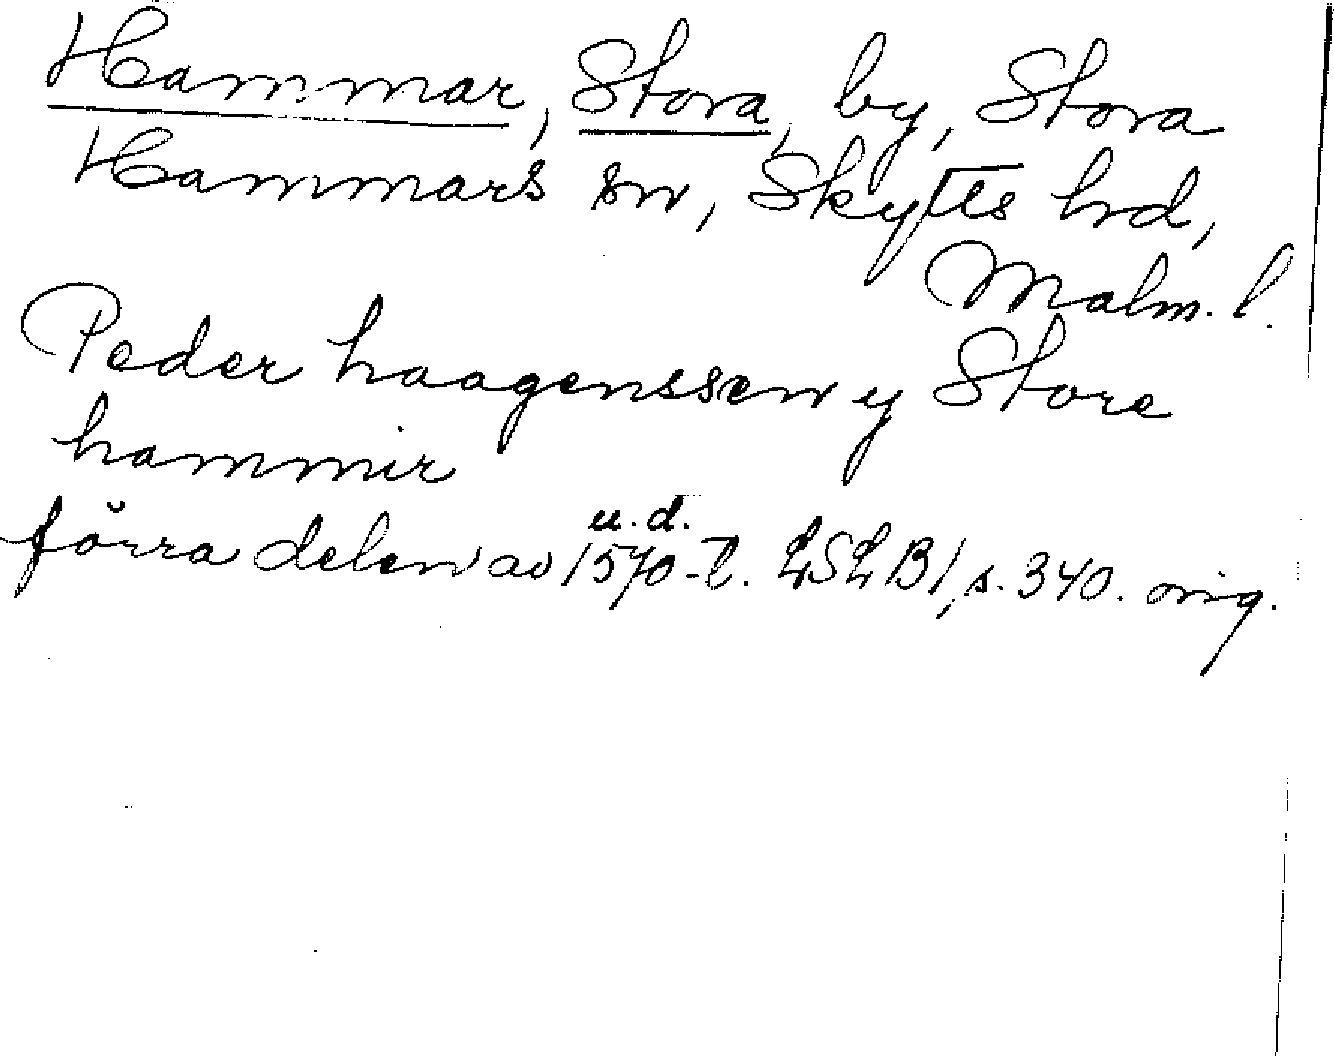 Hammar, Stora, by, Stora
Hammars sn, Skytts hd,
Malm. l.
Peder haagenssen y Store
hammir
u. d.
förra delen av 1570-t. LSLB1, s. 340. orig.